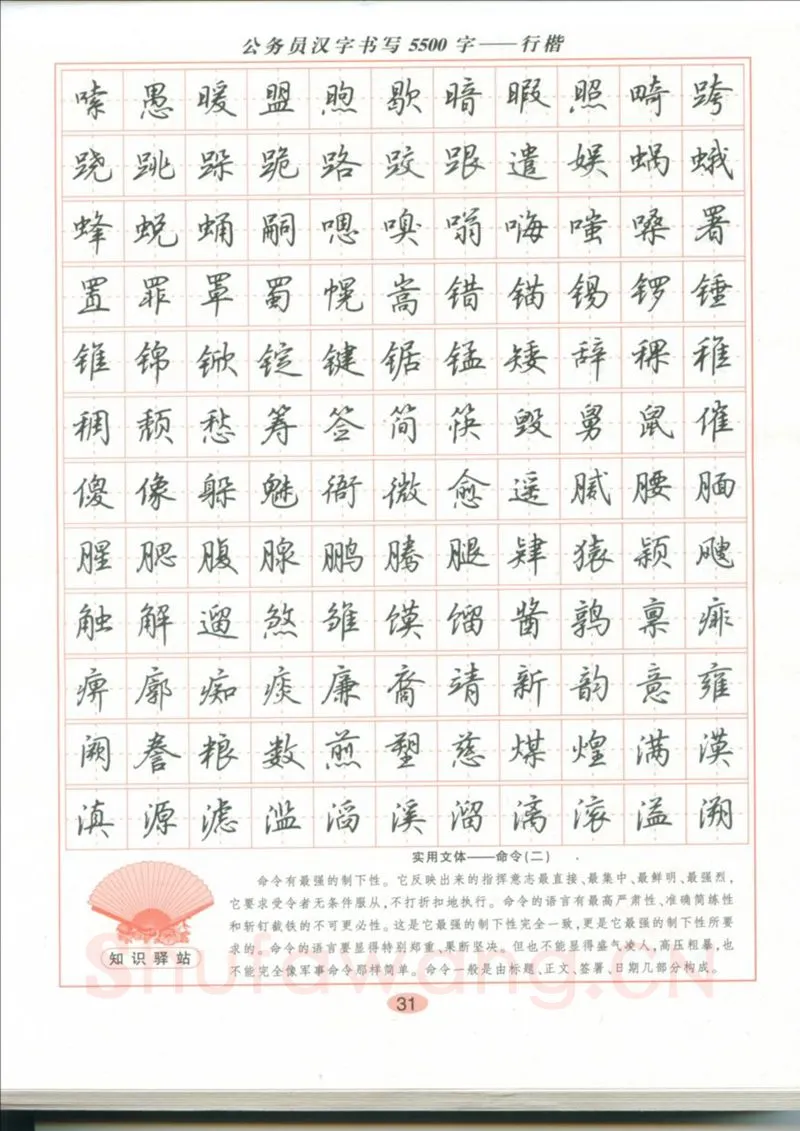 公务员汉字书写5500字——行楷
嗉愚暖盟煦歇暗暇照畸跨
跷跳跺跪路跤跟遣娱蜗蛾
蜂蜕蛹嗣嗯嗅嗡嗨嗤嗓署
置罪罩蜀幌嵩错锚锡锣锤
锥锦锨锭键锯锰矮辞稞稚
稠颓愁筹签简筷毁舅鼠催
傻像躲魅衙微愈遥腻腰腼
腥腮腹腺鹏腾腿肄猿颖飕
触解遛煞雏馍馏酱鹑禀痱
痹廓痴痰廉裔靖新韵意雍
阙誊粮数煎塑慈煤煌满漠
滇源滤滥滔溪溜漓滚溢溯
实用文体——命令(二)
命令有最强的制下性。它反映出来的指挥意志最直接、最集中、最鲜明、最强烈,
它要求受令者无条件服从,不打折扣地执行。命令的语言有最高严肃性、准确简练性
和斩钉截铁的不可更必性。这是它最强的制下性完全一致,更是它最强的制下性所要
求的。命令的语言要显得特别郑重、果断坚决。但也不能显得盛气凌人,高压粗暴,也
不能完全像军事命令那样简单。命令一般是由标题、正文、签署、日期几部分构成。
知识驿站
Shufawang.CN
31